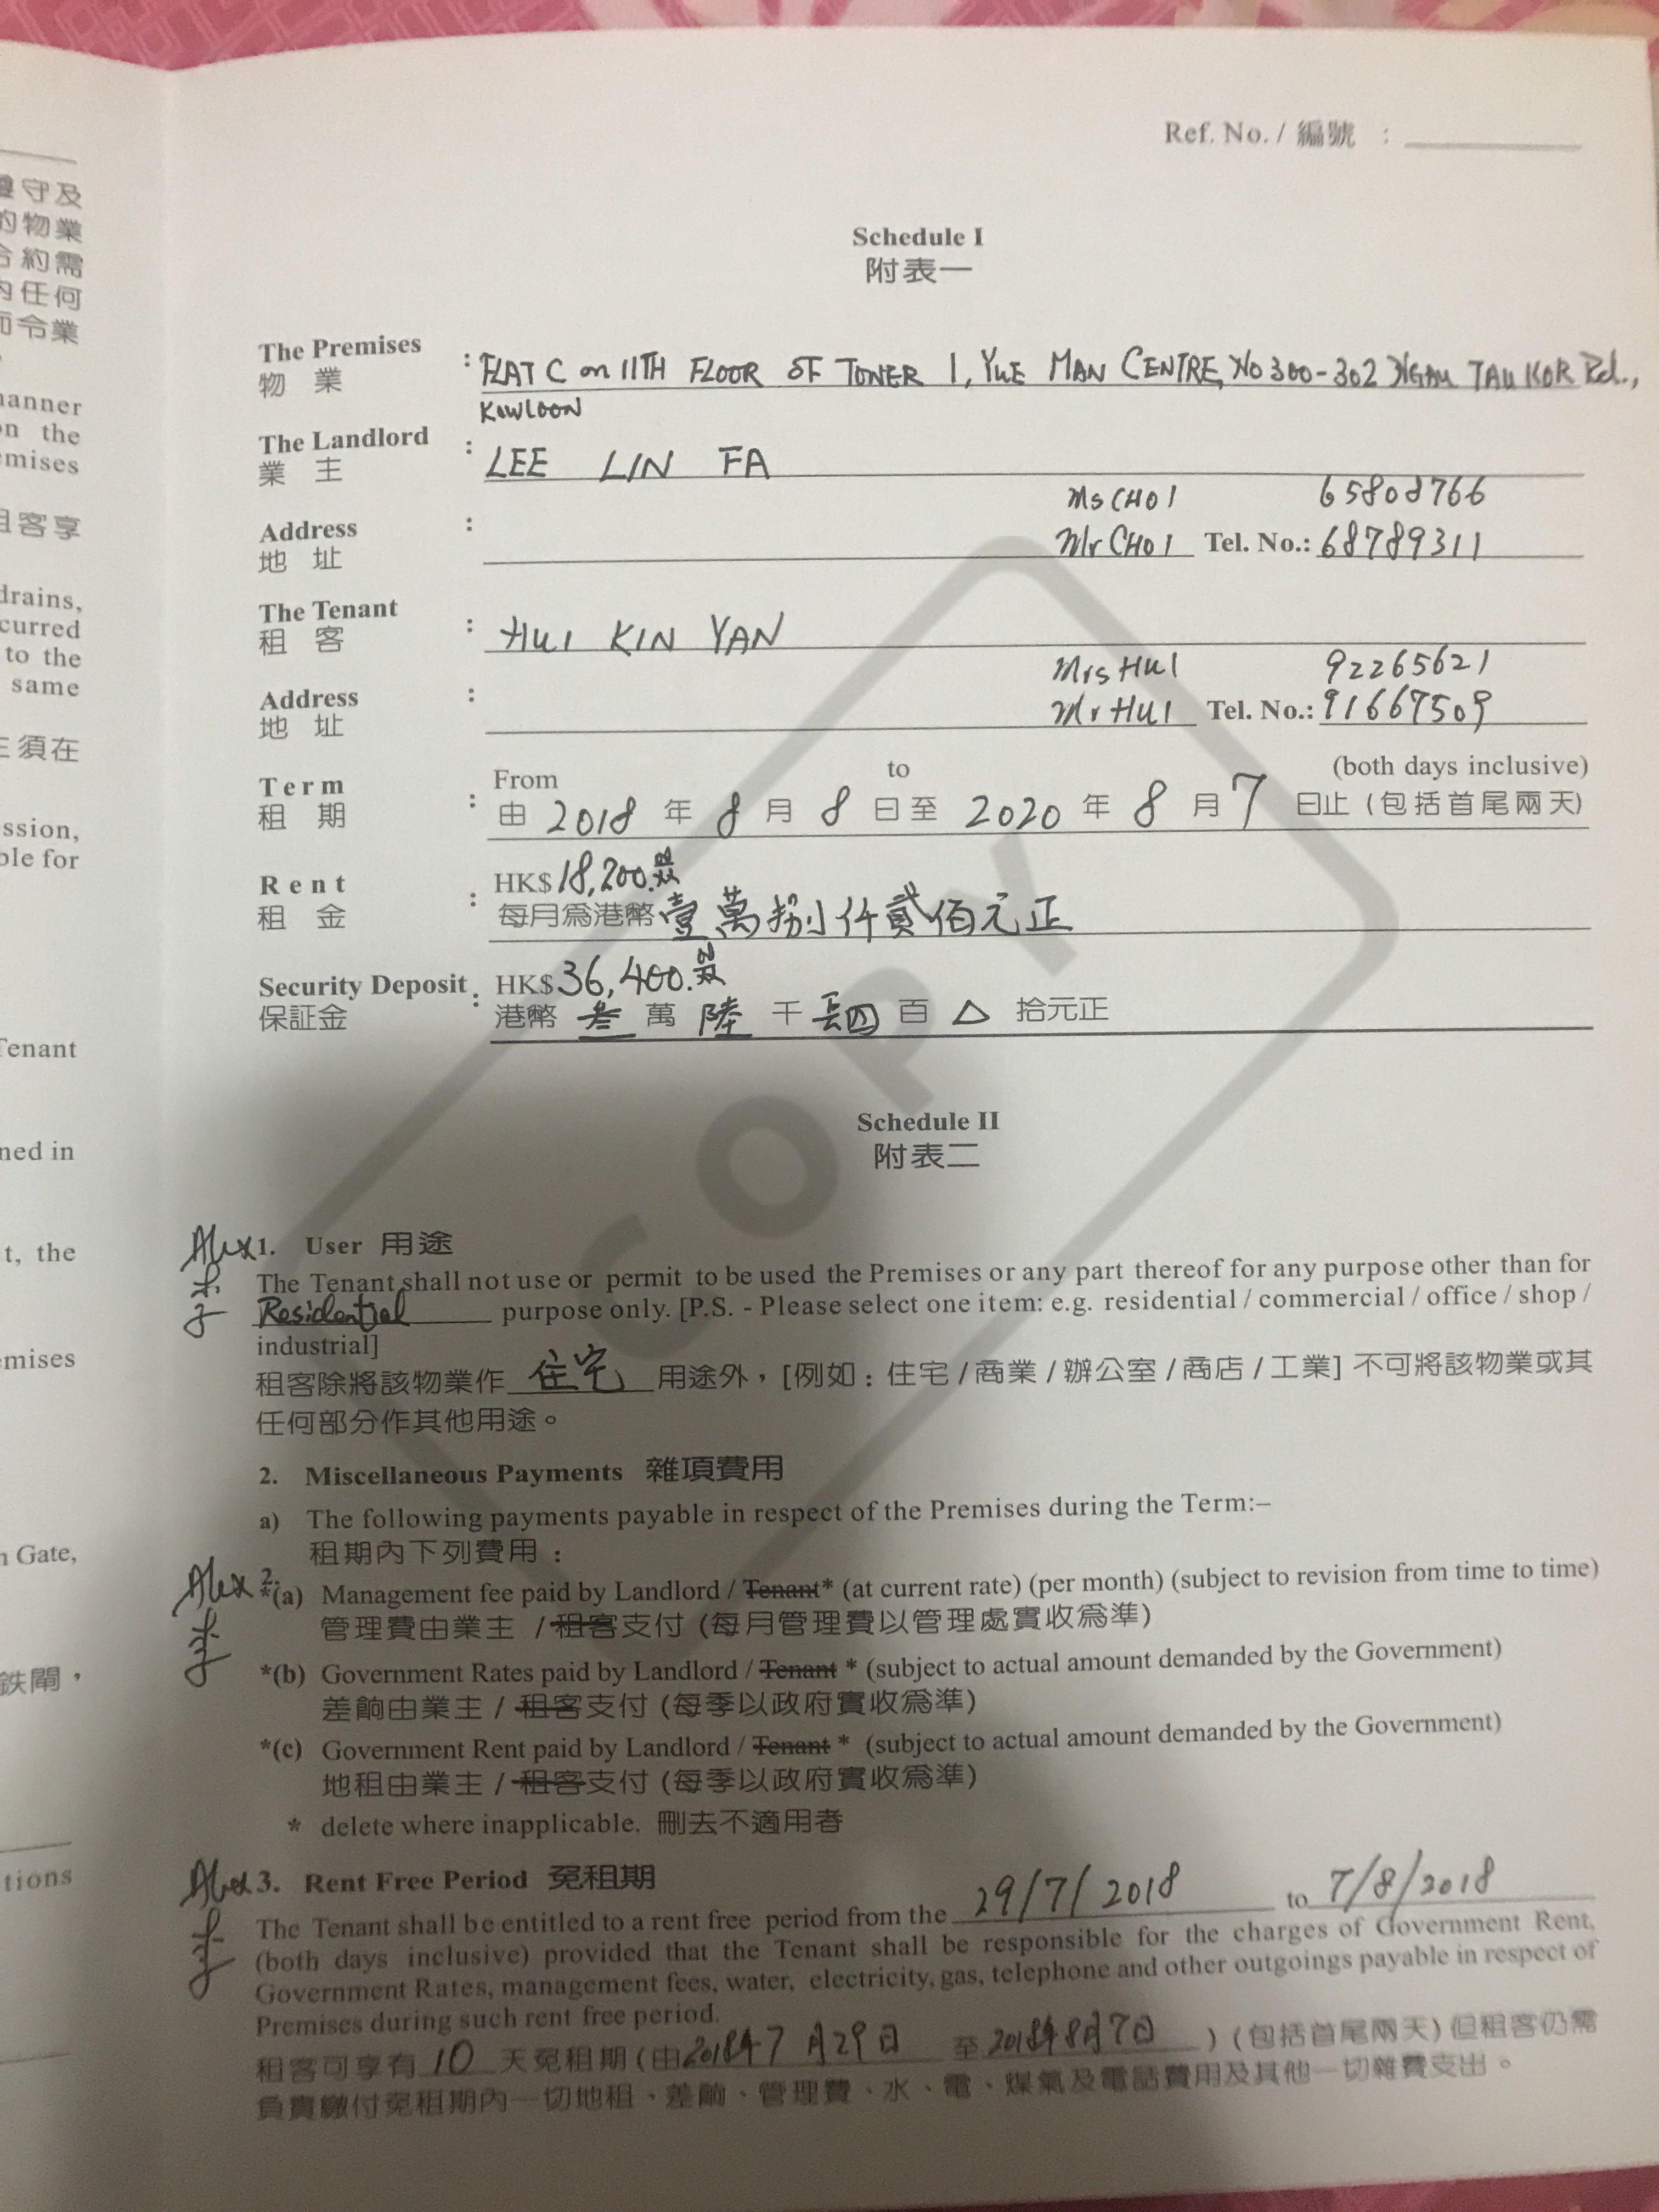 Ref. No. / 編號 :
Schedule I
附表一
The Premises : FLAT C on 11TH FLOOR OF TOWER 1, YUE MAN CENTRE, NO 300-302 NGAU TAU KOK Rd.,
物 業
KOWLOON
The Landlord : LEE LIN FA
業 主
Ms CHOI 65808766
Address : Mr CHOI Tel. No.: 68789311
地 址
The Tenant : HUI KIN YAN
租 客
Mrs HUI 92265621
Address : Mr HUI Tel. No.: 91667509
地 址
Term : From to (both days inclusive)
租 期 由 2018 年 8 月 8 日至 2020 年 8 月 7 日止 (包括首尾兩天)
Rent : HK$ 18,200.
租 金 每月為港幣 壹萬捌仟貳佰元正
Security Deposit : HK$ 36,400.
保証金 港幣 叁 萬 陸 千 肆 百 △ 拾元正
COPY
Schedule II
附表二
Alex 1. User 用途
The Tenant shall not use or permit to be used the Premises or any part thereof for any purpose other than for
Residential purpose only. [P.S. - Please select one item: e.g. residential / commercial / office / shop /
industrial]
租客除將該物業作 住宅 用途外，[例如 : 住宅 / 商業 / 辦公室 / 商店 / 工業] 不可將該物業或其
任何部分作其他用途。
2. Miscellaneous Payments 雜項費用
a) The following payments payable in respect of the Premises during the Term:–
租期內下列費用 :
Alex 2. *(a) Management fee paid by Landlord / Tenant* (at current rate) (per month) (subject to revision from time to time)
管理費由業主 / 租客支付 (每月管理費以管理處實收為準)
*(b) Government Rates paid by Landlord / Tenant * (subject to actual amount demanded by the Government)
差餉由業主 / 租客支付 (每季以政府實收為準)
*(c) Government Rent paid by Landlord / Tenant * (subject to actual amount demanded by the Government)
地租由業主 / 租客支付 (每季以政府實收為準)
* delete where inapplicable. 刪去不適用者
Alex 3. Rent Free Period 免租期
The Tenant shall be entitled to a rent free period from the 29/7/2018 to 7/8/2018
(both days inclusive) provided that the Tenant shall be responsible for the charges of Government Rent,
Government Rates, management fees, water, electricity, gas, telephone and other outgoings payable in respect of
Premises during such rent free period.
租客可享有 10 天免租期 (由 2018年7月29日 至 2018年8月7日 ) (包括首尾兩天) 但租客仍需
負責繳付免租期內一切地租、差餉、管理費、水、電、煤氣及電話費用及其他一切雜費支出。
遵守及
的物業
合約需
內任何
而令業
manner
on the
emises
租客享
drains,
curred
to the
same
須在
ssion,
ble for
Tenant
ned in
t, the
emises
n Gate,
鉄閘，
tions